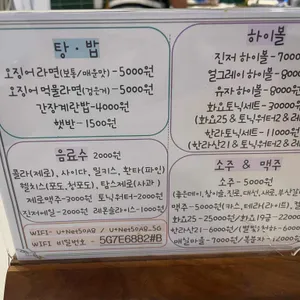 탕·밥
오징어 라면(보통/매운맛) - 5000원
오징어 먹물라면(검은거) - 5000원
간장계란밥 - 4000원
햇반 - 1500원
음료수 2000원
콜라(제로), 사이다, 밀키스, 환타(파인)
웰치스(포도, 청포도), 탐스제로(사과)
제로맥주 - 3000원 토닉워터 - 2000원
진저에일 - 2000원 레몬슬라이스 - 1000원
WIFI - U+Net50A8 / U+Net50A8_5G
WIFI 비밀번호 - 5G7E6882#8
하이볼
진저 하이볼 - 7000
얼그레이 하이볼 - 8000
유자 하이볼 - 8000
화요토닉세트 - 30000
(화요25 & 토닉워터2 & 레
한라토닉세트 - 11000
(한라산21 & 토닉워터2 & 레
소주 & 맥주
소주 - 5000원
맥주 - 5000원(카스, 테라, (라이트),
화요25 - 25000원/화요19금 - 22000
한라산21 - 6000원/
매실마을 - 7000원/복분자 - 12000